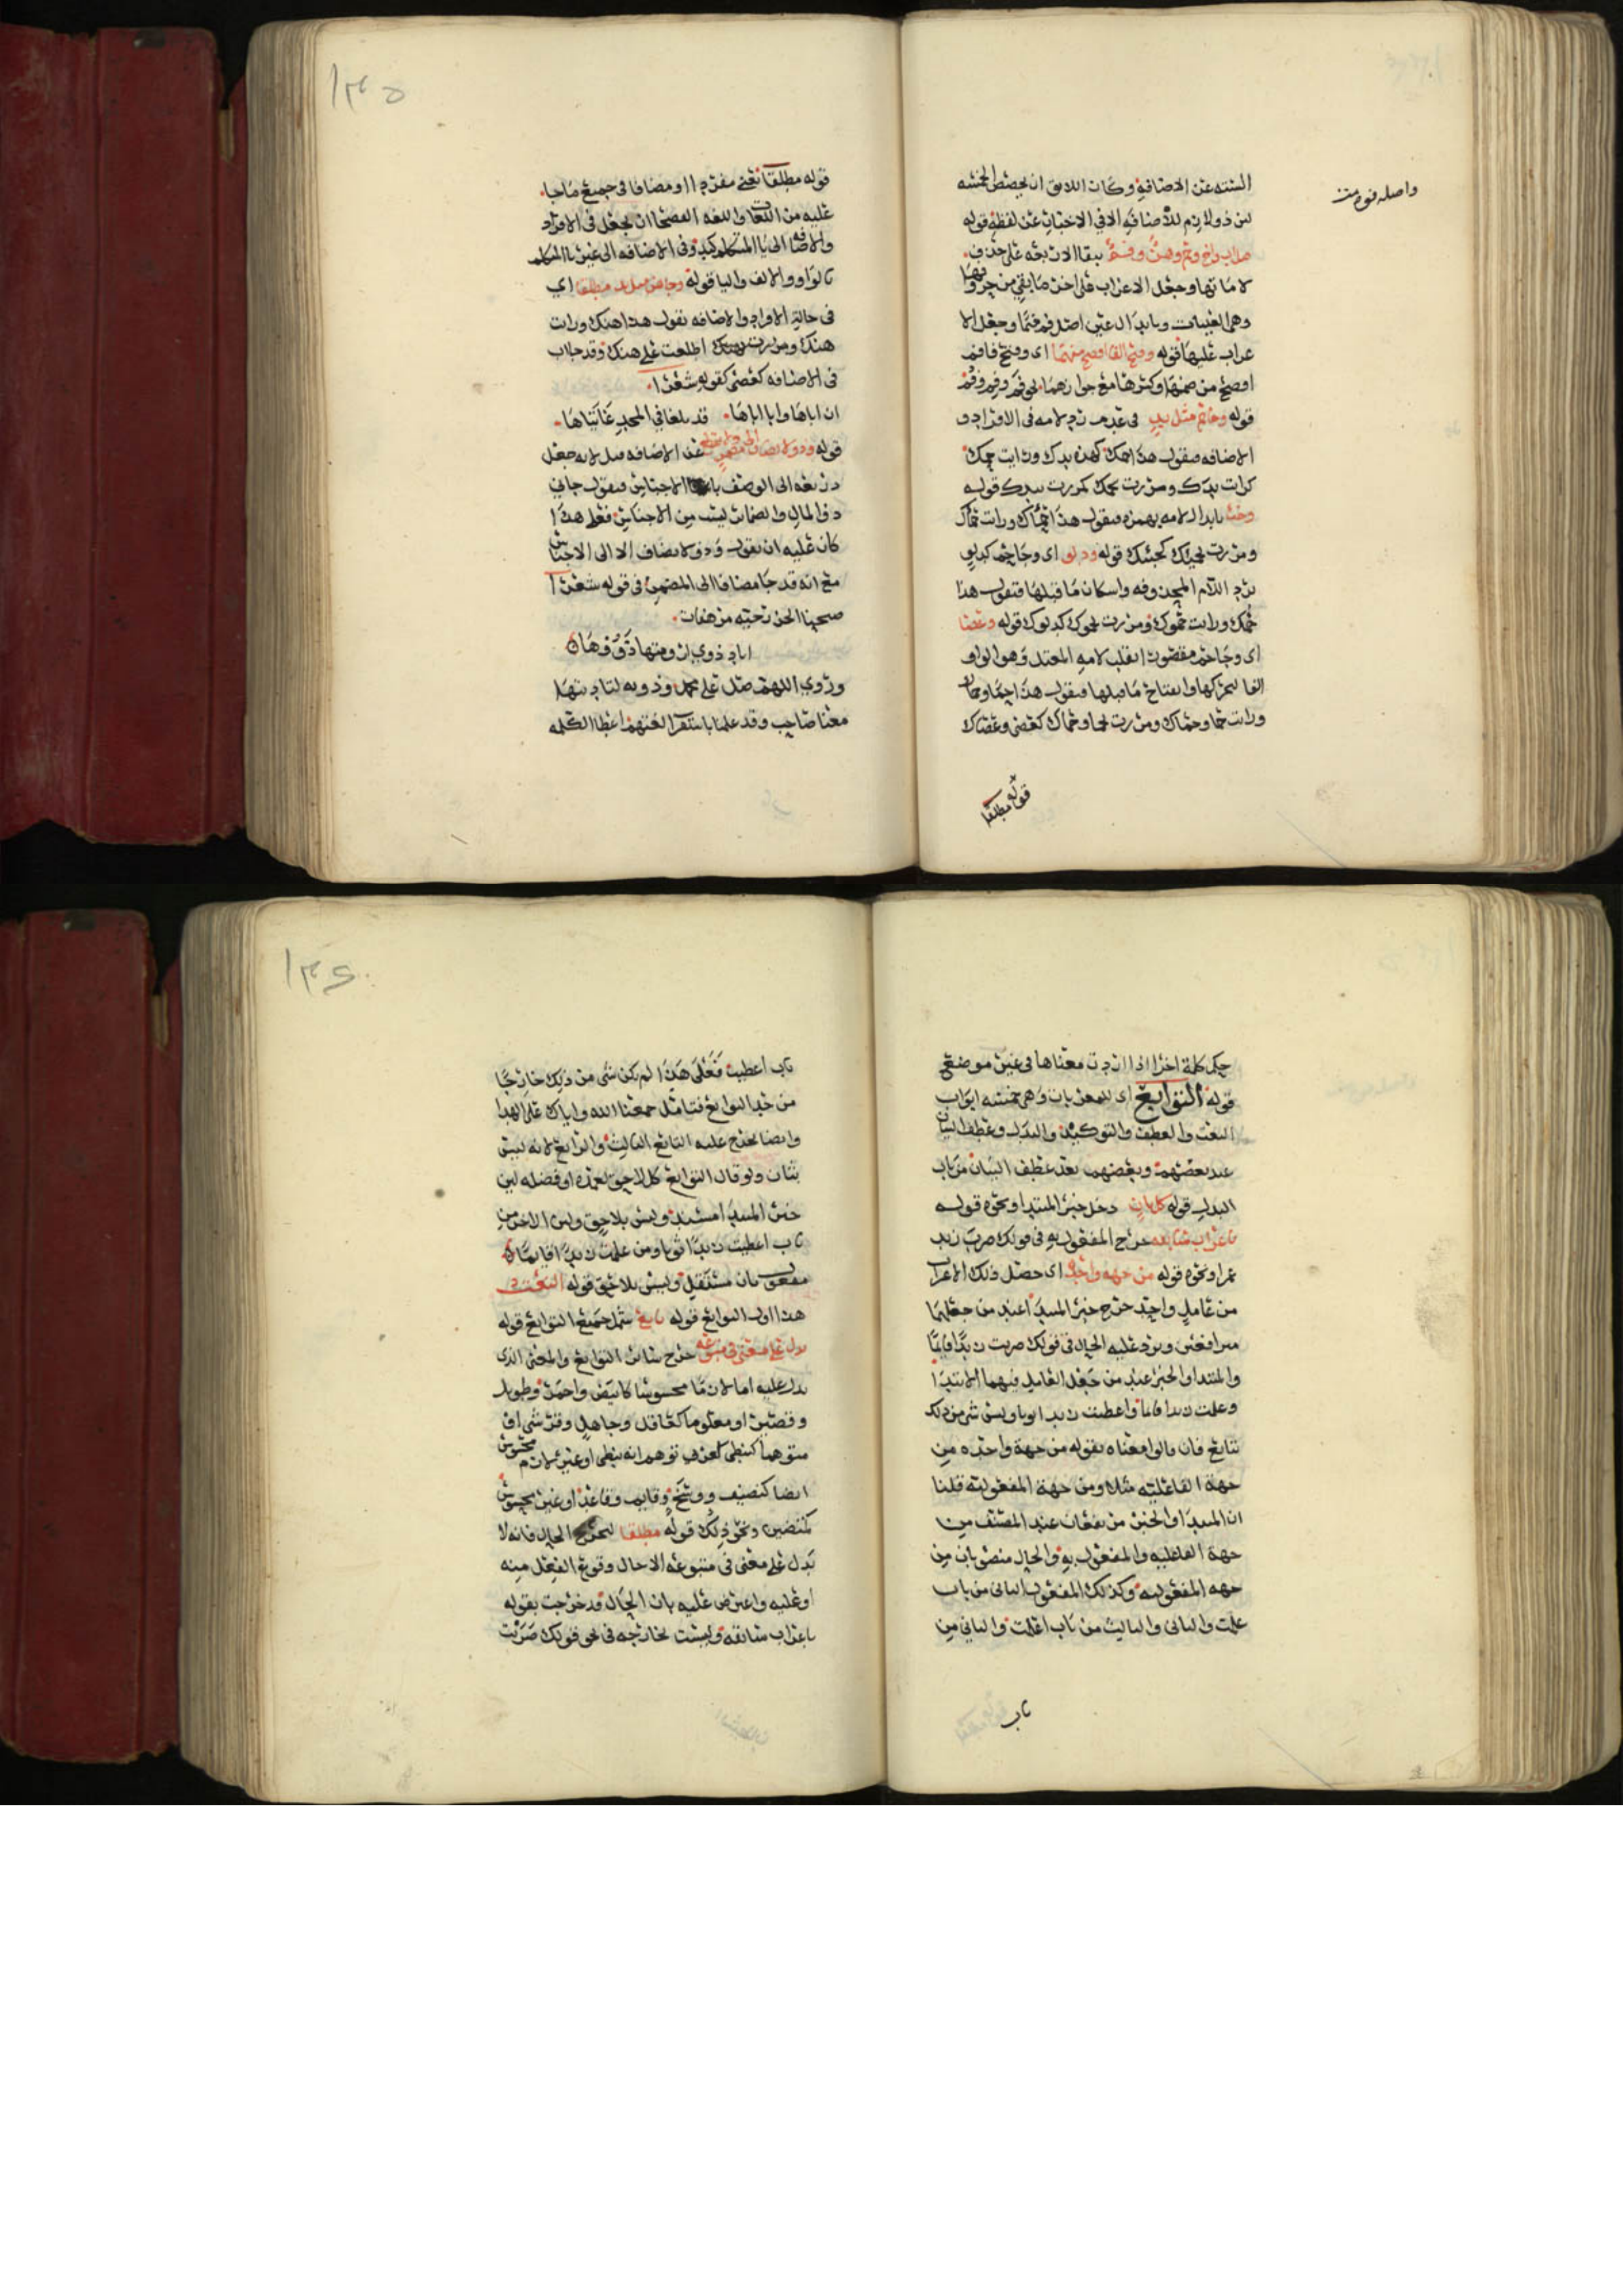 الستة عن الاضافة وكان اللايق ان يخصص الخمسه
لان ذو لازم للاضافه الا في الاخبار عن لفظه قوله
واصله فوه
اب واخ وحم وهن وفم ببقا الاربعه على حذف
لاماتها وجعل الاعراب على اخر ما بقي من حروفها
وهي العينات وبابدال عين اصل فم ميما وجعل الا
عراب عليها قوله وفتح الفا افصح منهما اى وفتح فا فم
افصح من ضمها وكسرها مع جوازهما نحو فم وفم وفم
قوله وجا حم مثل يد في عدم رد لامه في الافراد و
الاضافه فيقول هذا حمك كهذه يدك ورايت حمك
كرايت يدك ومررت بحمك كمررت بيدك قوله
وخبء بابدال لامه بهمزه فيقول هذا حمؤك ورايت حماك
ومررت بحميك كخبئك قوله ودلو اى وجا حم كدلو
برد اللام المحذوفه واسكان ما قبلها فتقول هذا
حموك ورايت حموك ومررت بحموك كدلوك قوله وعصا
اى وجا حم مقصورا بقلب لامه المعتل وهو الواو
الفا لتحركها وانفتاح ما قبلها فيقول هذا حما وحماك
ورايت حما وحماك ومررت بحما وحماك كعصى وعصاك
قوله مطلقا
١٣٥
قوله مطلقا يعني مفردا او مضافا في جميع ما جا
عليه من اللغات واللغه الفصحا ان يجعل في الافراد
والاضافه الى يا المتكلم كيد وفي الاضافه الى غير يا المتكلم
بالواو والالف واليا قوله وجا هن مثل يد مطلقا اي
في حالة الافراد والاضافه تقول هذا هنك ورايت
هنك ومررت بهنك اطلعت على هنك وقد جا اب
في الاضافه كعصى كقوله شعرا
ان اباها وابا اباها قد بلغا في المجد غايتاها
قوله وذو لا يضاف الى مضمر ولا يقطع عن الاضافه قيل لانه جعل
ذريعه الى الوصف باسما الاجناس فيقول جاني
ذو المال والضمائر ليست من الاجناس فعلى هذا
كان عليه ان يقول وذو لا يضاف الا الى الاجناس
مع انه قد جا مضافا الى المضمر في قوله شعرا
صبحنا الخزرجيه مرهفات
اباد ذوي ارومتها ذووها
وروي اللهم صل على محمد وذويه لتاديتها
معنا صاحب وقد علمنا باستقرا لغتهم اعطا الكلمه
حكم كلمة اخرا اذا ادت معناها في غير موضع
قوله التوابع اى للمعربات وهي خمسه ابواب
النعت والعطف والتوكيد والبدل وعطف البيان
عند بعضهم وبعضهم يعد عطف البيان من باب
البدل قوله كل ثان دخل خبر المبتدا ونحوه قوله
باعراب سابقه خرج المفعول به في قولك ضرب زيد
عمرا ونحوه قوله من جهه واحده اى حصل ذلك الاعراب
من عامل واحد خرج خبر المبتدا عند من جعلهما
مترافعين ويرد عليه الحال في قولك ضربت زيدا قايما
والمبتدا والخبر عند من جعل العامل فيهما الابتدا
وعلمت زيدا قايما واعطيت زيدا ثوبا وليس شى من ذلك
بتابع فان قالوا معناه بقوله من جهة واحده من
جهة الفاعليه مثلا ومن جهة المفعوليه قلنا
ان المبتدا والخبر مرتفعان عند المصنف من
جهة الفاعليه والمفعول به والحال منصوبان من
جهه المفعوليه وكذلك المفعول الثاني من باب
علمت والثاني والثالث من باب اعلمت والثاني من
باب
١٣٦
باب اعطيت فعلى هذا لم يكن شى من ذلك خارجا
من حد التوابع فتامل جمعنا الله واياك على الهدا
وايضا يخرج عليه التابع الثالث والرابع لانه ليس
بثان ولو قال التوابع كل لاحق لعمده او فضله لان
خبر المبتدا مسند وليس بلاحق وليس الاخر من
باب اعطيت زيدا ثوبا ومن علمت زيدا قايما
مفعول ثان مستقل وليس بلاحق قوله النعت
هذا اول التوابع قوله تابع شمل جميع التوابع قوله
يدل على معنى في متبوعه خرج سائر التوابع والمعنى الذى
يدل عليه اما لازما محسوسا كابيض واحمر وطويل
وقصير او معلوما كعاقل وجاهل وفرشي او
متوهما كنبطي لعربي توهم انه نبطي او غير لازم محسوس
ايضا كنصيف ووسخ وقايم وقاعد او غير محسوس
كمتضير ونحو ذلك قوله مطلقا ليخرج الحال فانه لا
يدل على معنى في متبوعه الا حال وقوع الفعل منه
او عليه واعترض عليه بان الحال قد خرجت بقوله
باعراب سابقه وليست بخارجه في نحو قولك ضربت